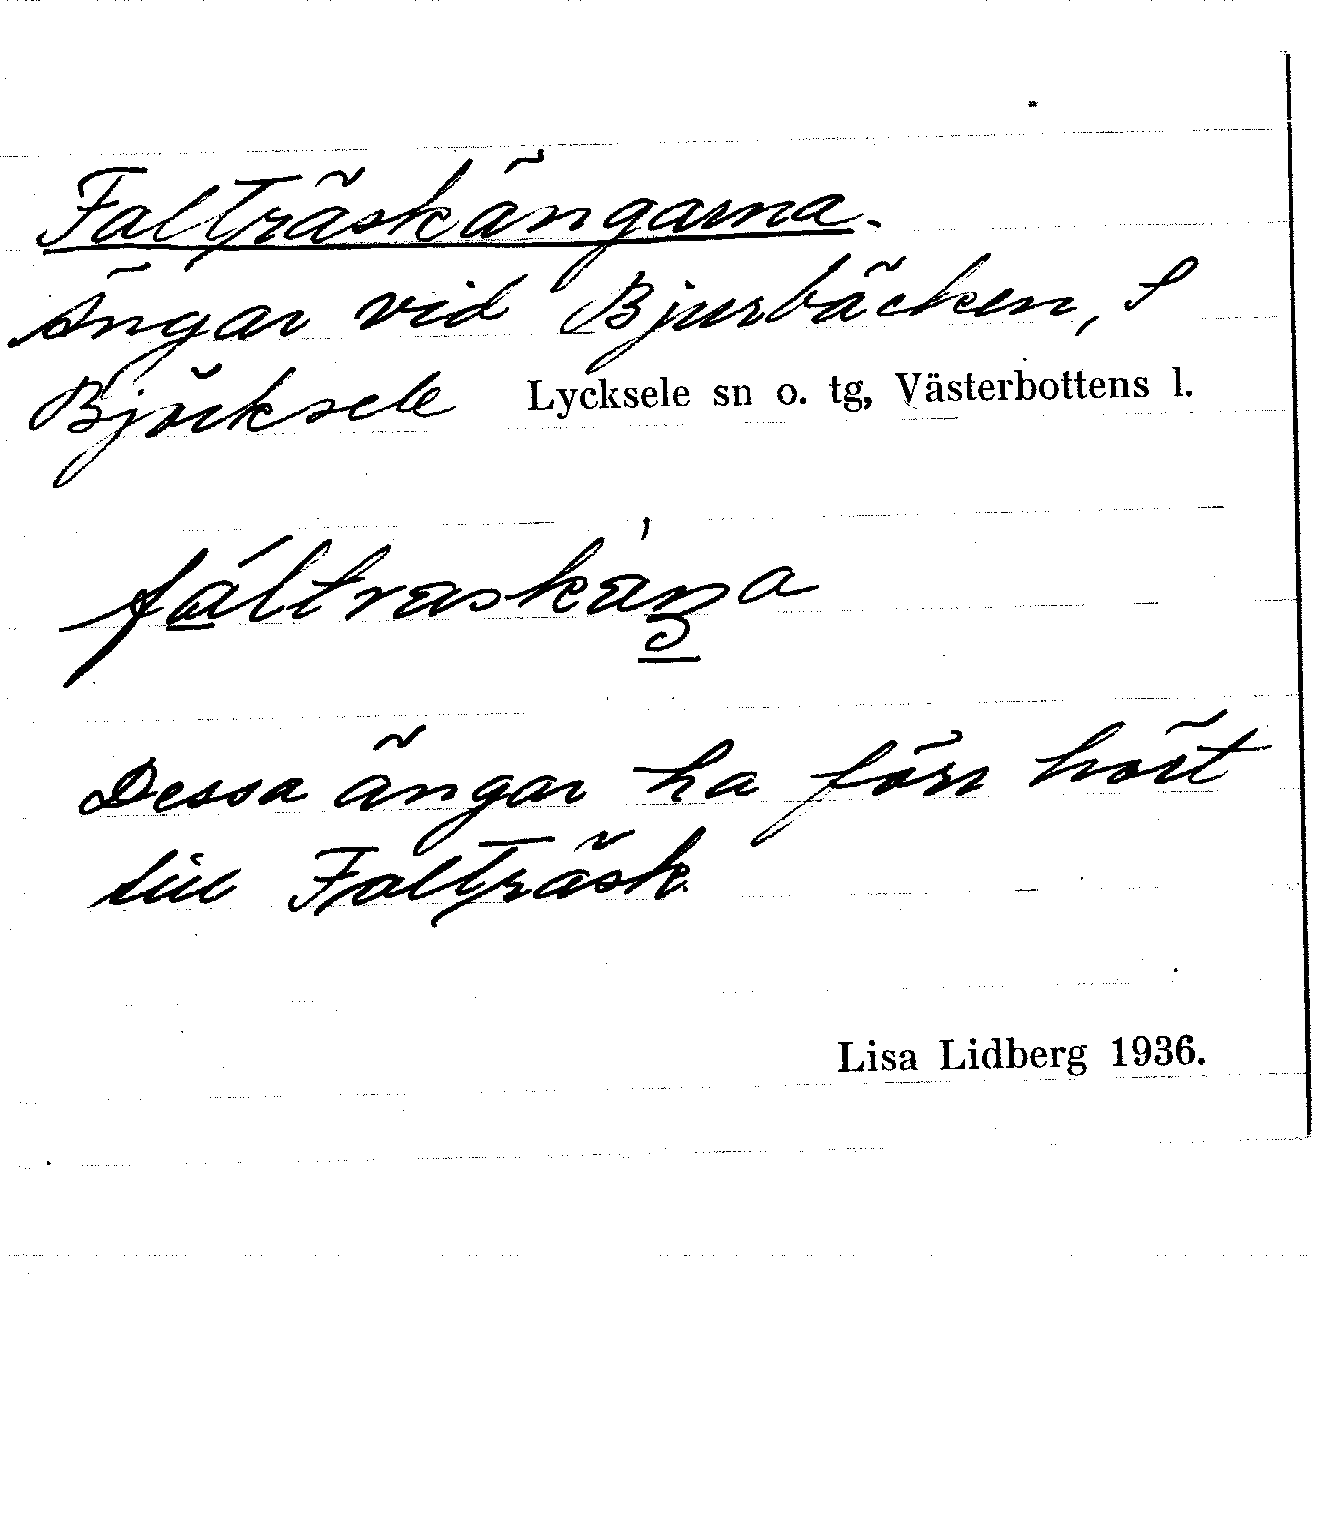 Falträskängarna.
Ängar vid Bjurbäcken, S
Björksele Lycksele sn o. tg, Västerbottens l.
fáltraskàŋa
Dessa ängar ha förr hört
till Falträsk
Lisa Lidberg 1936.